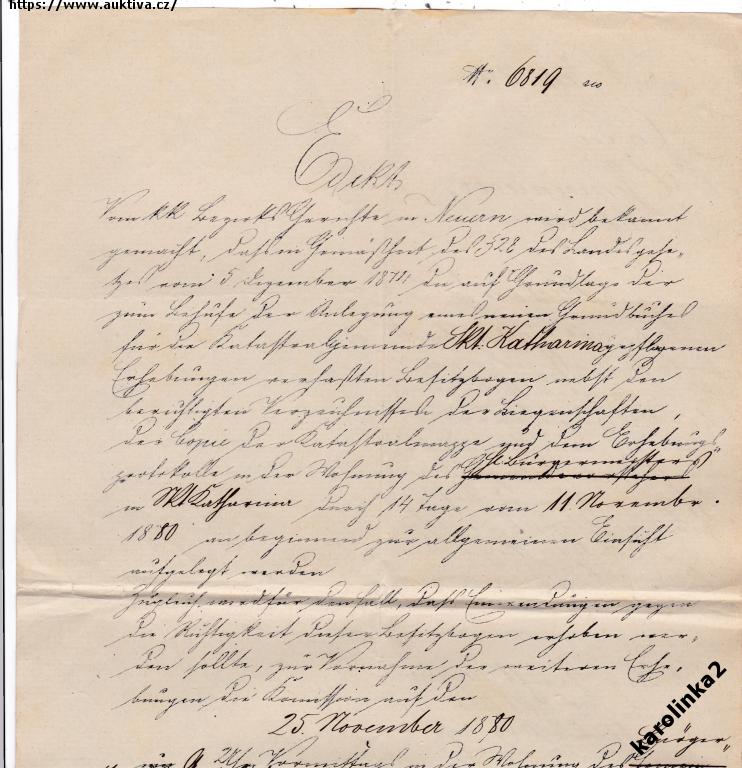 https://www.auktiva.cz/
Nr. 6819
Edikt
Vom kk Bezirks Gerichte in Neuern wird bekannt
gemacht, daß in Gemäßheit des §28 des Landesgese-
tzes vom 5 Dezember 1874, die auf Grundlage der
zum Behufe der Anlegung eines neuen Grundbuches
für die Katastralgemeinde Skt. Katharina gepflogenen
Erhebungen verfaßten Besitzbogen nebst den
berichtigten Verzeichnissen der Liegenschaften,
der Copie der Katastralmappe und dem Erhebungs
protokolle in der Wohnung des Bürgermeisters
in Skt Katharina durch 14 Tage vom 11. Novembr.
1880 an beginnend zur allgemeinen Einsicht
aufgelegt werden
Zugleich wird für den Fall, daß Einwendungen gegen
die Richtigkeit dieser Besitzbogen erhoben wer-
den sollte, zur Vornahme der weiteren Erhe-
bungen die Komission auf den
25. November 1880
Bürger
9 Uhr Vormittags in der Wohnung des
karolinka2